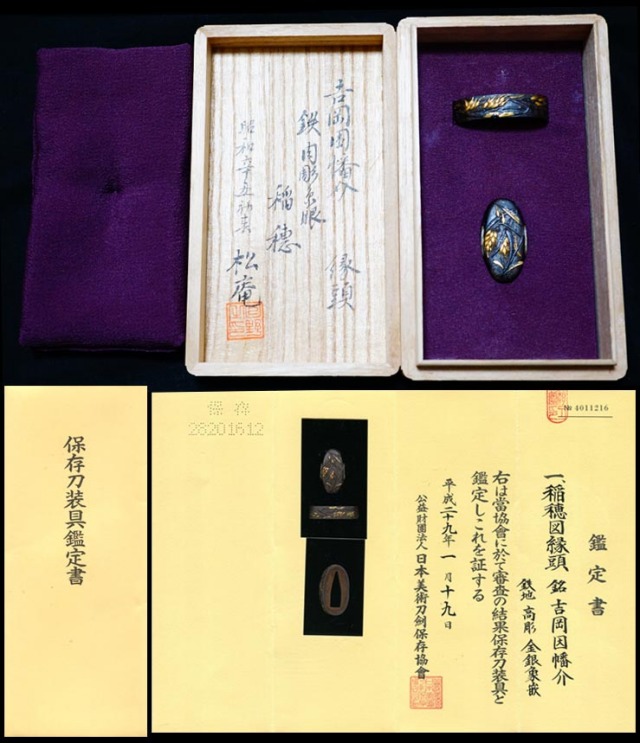 吉岡因幡介 縁頭
鉄肉彫象眼
稲穂
昭和六十五初春 松庵
保存刀装具鑑定書
保存
28201612
№ 4011216
鑑定書
一、稲穂図縁頭 銘 吉岡因幡介
鉄地 高彫 金銀象嵌
右は當協會に於て審査の結果保存刀装具と
鑑定しこれを証する
平成二十九年一月十九日
公益財團法人 日本美術刀劍保存協會